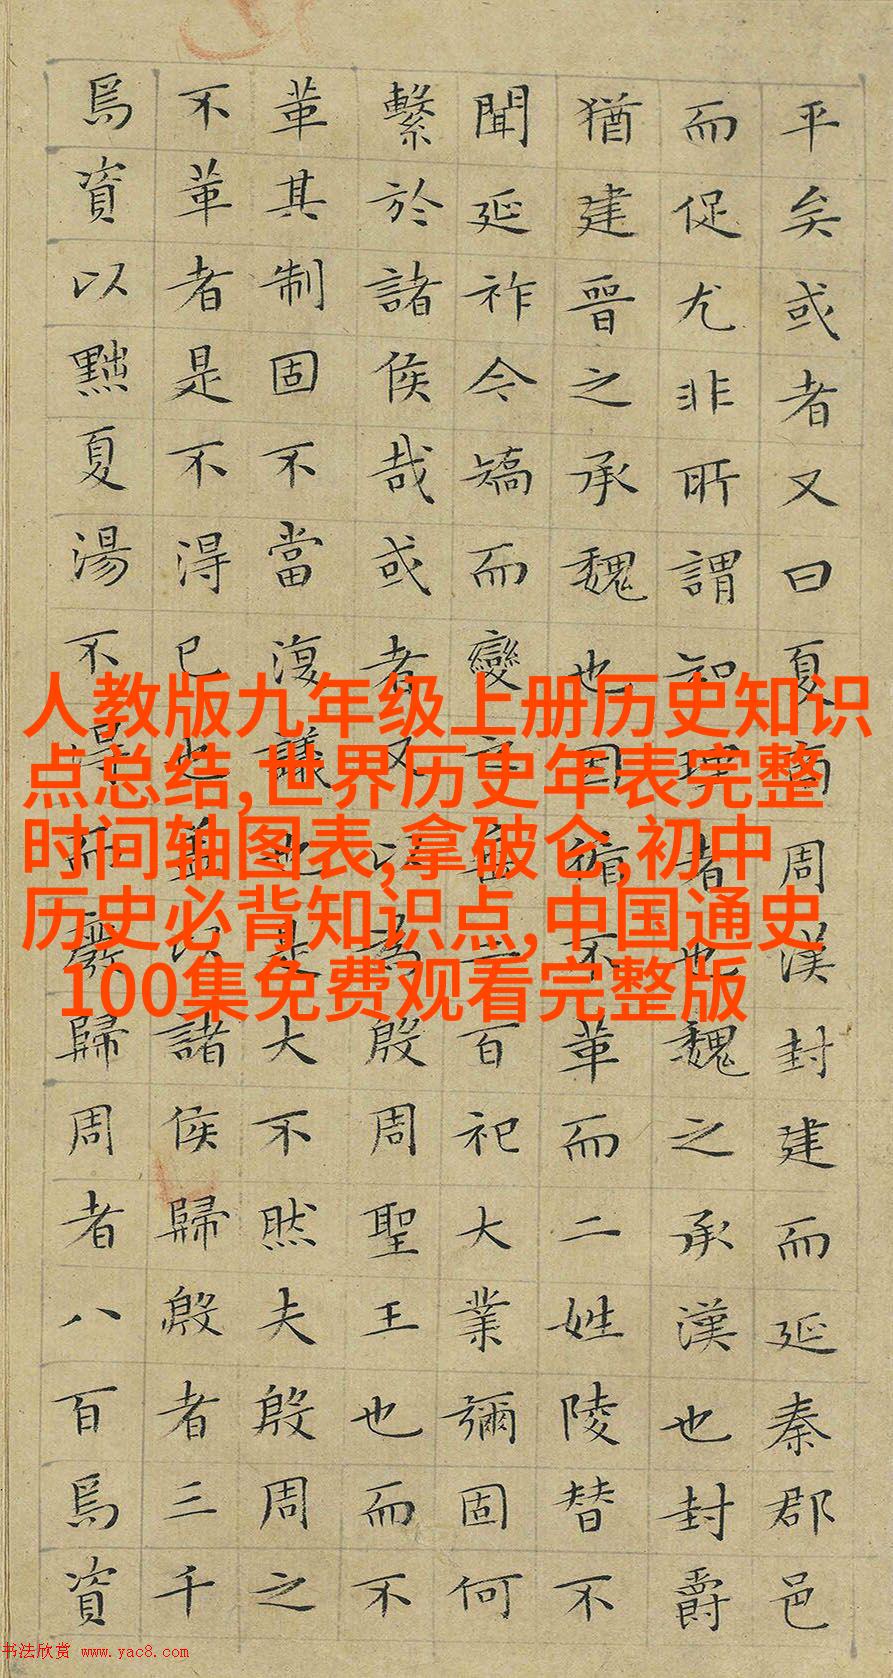 平矣或者又曰夏商周漢封建而延秦郡邑
而促尤非所謂知理者也魏之承漢也封爵
猶建晉之承魏也因循不革而二姓陵替不
聞延祚今矯而變之垂二百祀大業彌固何
繫於諸侯哉或者又以為殷周聖王也而不
革其制固不當復議也是大不然夫殷周之
不革者是不得已也蓋以諸侯歸殷者三千
焉資以黜夏湯不得而廢歸周者八百焉資
人教版九年级上册历史知识
点总结,世界历史年表完整
时间轴图表,拿破仑,初中
历史必背知识点,中国通史
100集免费观看完整版
书法欣赏 www.yac8.com